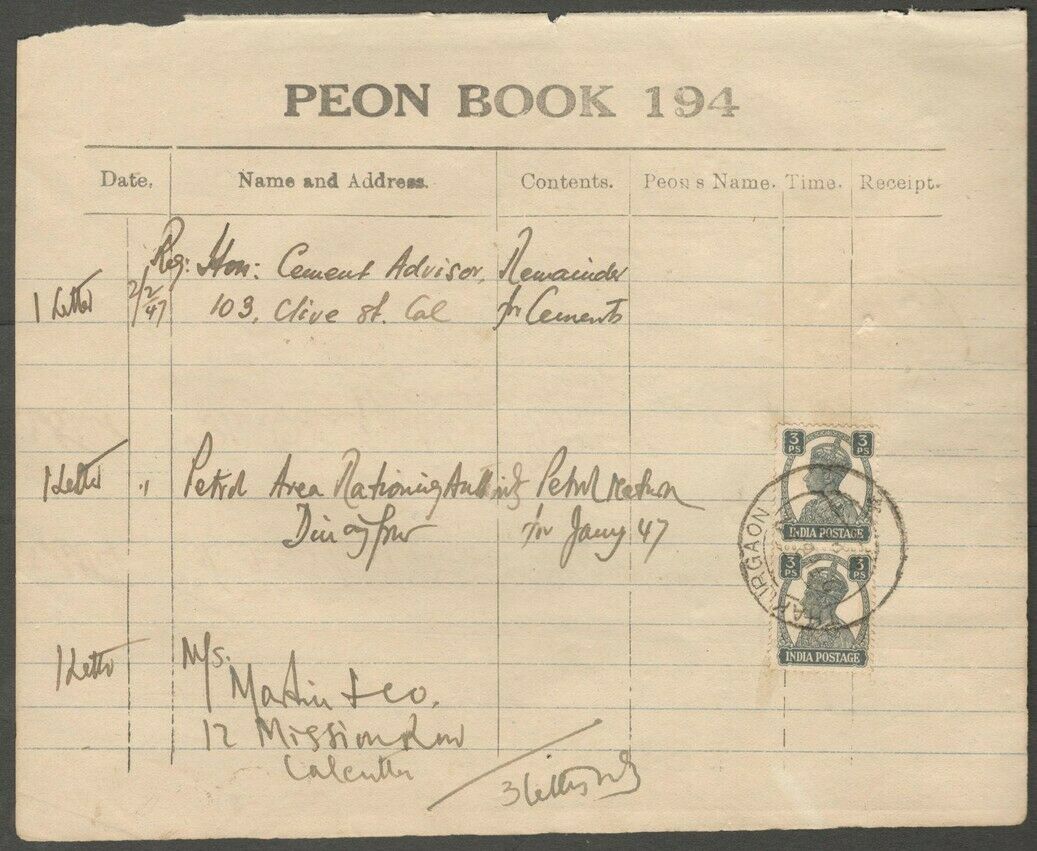 PEON BOOK 194
Date. Name and Address. Contents. Peon's Name. Time. Receipt.
Reg: Hon: Cement Advisor, Remainder
1 Letter 2/2/47 103, Clive St. Cal for Cements
1 Letter " Petrol Area Rationing Authority Petrol Return
Dinajpur for Jany 47
1 Letter M/s.
Martin & Co.
12 Mission Row
Calcutta
3 letters only
3 PS 3 PS
INDIA POSTAGE
3 PS 3 PS
INDIA POSTAGE
THAKURGAON